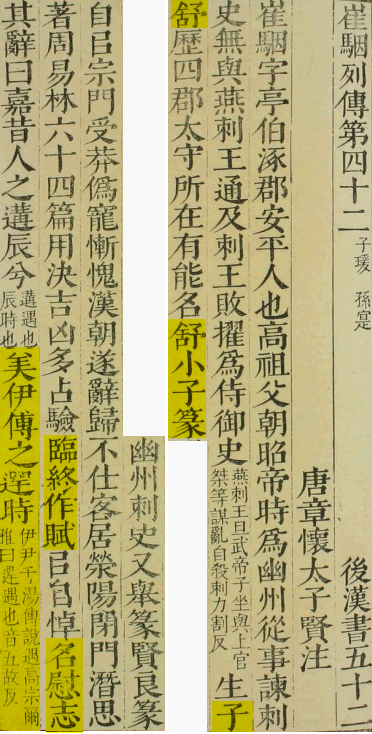 崔駰列傳第四十二 子瑗 孫寔 後漢書五十二
唐章懷太子賢注
崔駰字亭伯涿郡安平人也高祖父朝昭帝時爲幽州從事諫刺
史無與燕刺王通及刺王敗擢爲侍御史燕刺王旦武帝子坐與上官桀等謀亂自殺刺力割反生子
舒歷四郡太守所在有能名舒小子篆
幽州刺史又舉篆賢良篆
自㠯宗門受莽僞寵慚愧漢朝遂辭歸不仕客居滎陽閉門潛思
著周易林六十四篇用決吉凶多占驗臨終作賦㠯自悼名慰志
其辭曰嘉昔人之遘辰兮遘遇也辰時也美伊傅之遻時伊尹干湯傅說遇高宗爾雅曰遻遇也音五故反